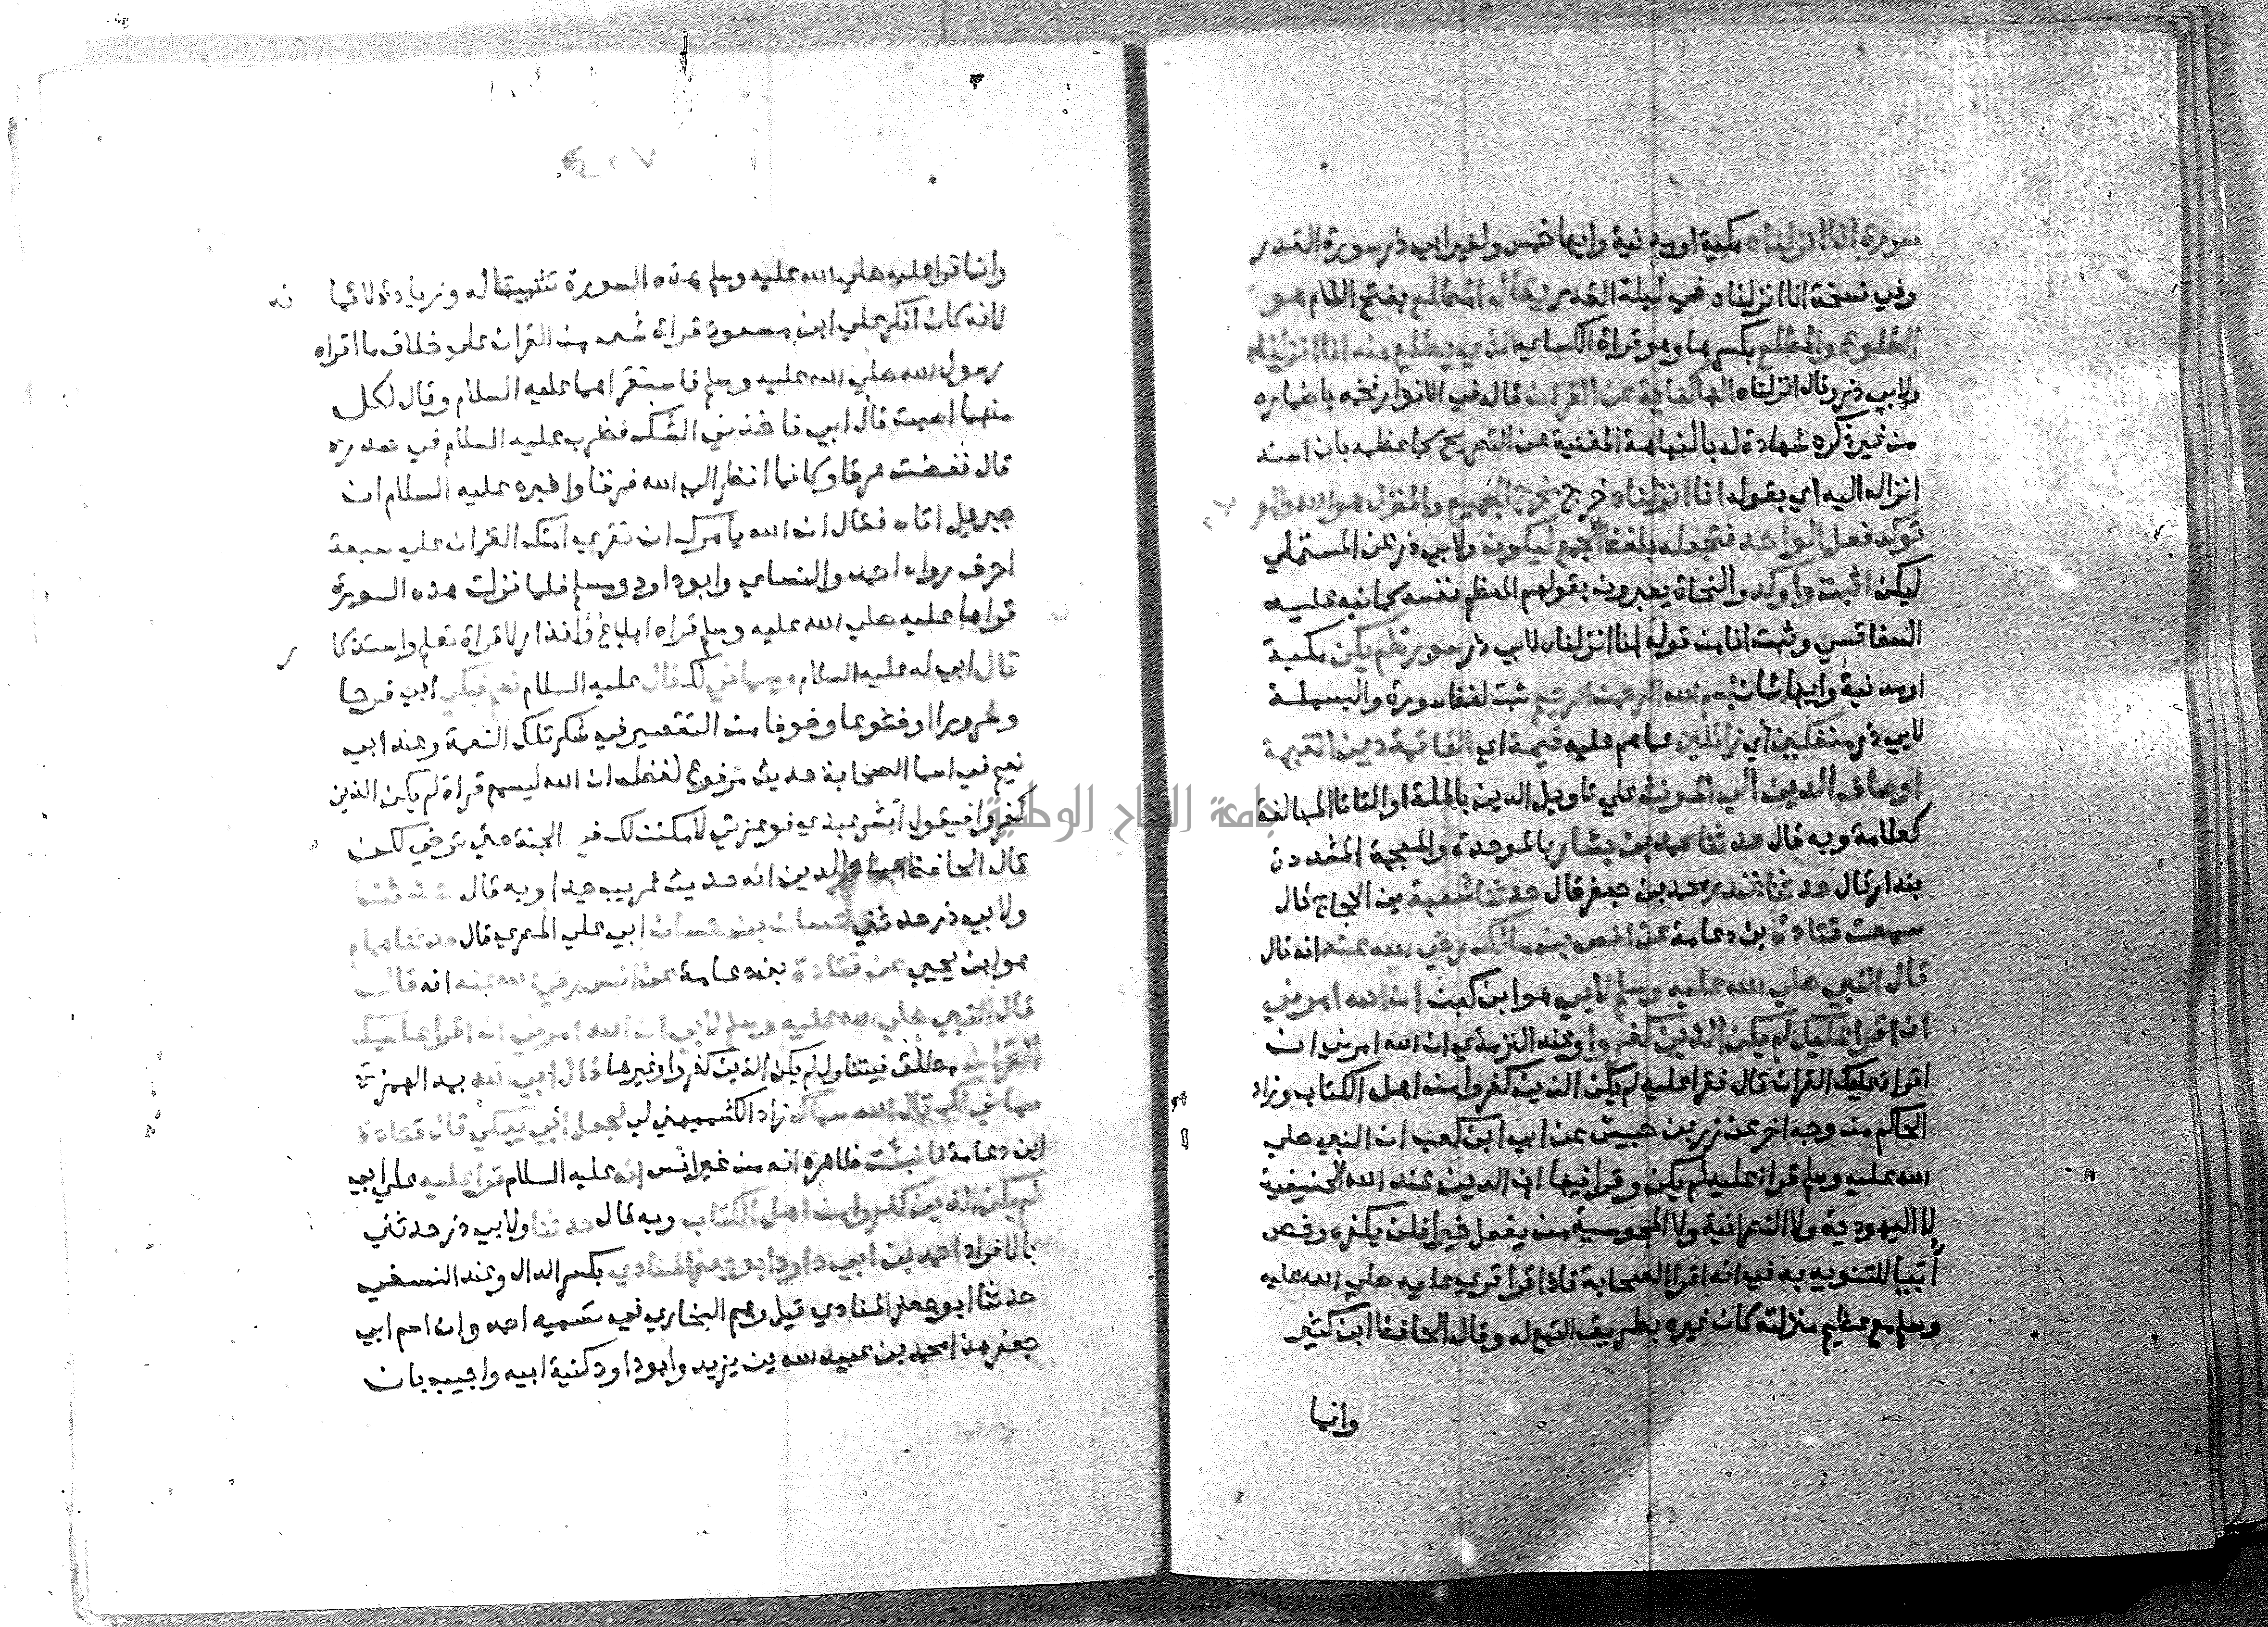 سورة انا انزلناه مكية او مدنية وايها خمس ولغير ابي ذر سورة القدر
وفي نسخة انا انزلناه في ليلة القدر يقال المطلع بفتح اللام هو
الطلوع والمطلع بكسرها وهو قراة الكساي الذي يطلع منه انا انزلناه
ولابي ذر وقال انزلناه الها كناية عن القران قال في الانوار فخمه باضماره
من غير ذكره شهادة له بالنباهة المغنية عن التصريح كما عظمه بان اسند
انزاله اليه اي بقوله انا انزلناه خرج مخرج الجميع والمنزل هو الله والعرب
توكد فعل الواحد فتجعله بلفظ الجمع ليكون ولابي ذر عن المستملي
ليكن اثبت واوكد والنحاة يعبرون بقولهم المعظم نفسه كما نبه عليه
السفاقسي وثبت انا من قوله انا انزلناه لابي ذر سورة لم يكن مكية
او مدنية وايها ثمان بسم الله الرحمن الرحيم ثبت لفظ سورة والبسملة
لابي ذر منفكين اي زائلين عما هم عليه قيمة اي القائمة دين القيمة
اضاف الدين الي المونث علي تاويل الدين بالملة او التا للمبالغة
كعلامة وبه قال حدثنا محمد بن بشار بالموحدة والمعجمة المشددة
بندار قال حدثنا غندر محمد بن جعفر قال حدثنا شعبة بن الحجاج قال
سمعت قتادة بن دعامة عن انس بن مالك رضي الله عنه انه قال
قال النبي صلي الله عليه وسلم لابي هو ابن كعب ان الله امرني
ان اقرا عليك لم يكن الذين كفروا وعند الترمذي ان الله امرني ان
اقرا عليك القران قال فقرا عليه لم يكن الذين كفروا من اهل الكتاب وزاد
الحاكم من وجه اخر عن زر بن حبيش عن ابي ابن كعب ان النبي صلي
الله عليه وسلم قرا عليه لم يكن وقرا فيها ان الدين عند الله الحنيفية
لا اليهودية ولا النصرانية ولا المجوسية من يفعل خيرا فلن يكفره وخص
أبيا للتنويه به في انه اقرا الصحابة فاذا قرا عليه صلي الله عليه
وسلم مع عظيم منزلته كان غيره بطريق التبع له وقال الحافظ ابن كثير
وانما
وانما قرا عليه صلي الله عليه وسلم هذه السورة تثبيتا له وزيادة لايمانه
لانه كان انكر علي ابن مسعود قراة شي من القران علي خلاف ما اقراه
رسول الله صلي الله عليه وسلم فاستقراهما عليه السلام وقال لكل
منهما اصبت قال ابي فاخذني الشك فضرب عليه السلام في صدره
قال ففضت عرقا وكانما انظر الي الله فرقا واخبره عليه السلام ان
جبريل اتاه فقال ان الله يامرك ان تقري امتك القران علي سبعة
احرف رواه احمد والنساي وابو داود ومسلم فلما نزلت هذه السورة
قراها عليه صلي الله عليه وسلم قراة ابلاغ وانذار لا قراة تعلم واستذكار
قال ابي له عليه السلام وسماني لك قال عليه السلام نعم فبكي ابي فرحا
وسرورا او خشوعا وخوفا من التقصير في شكر تلك النعمة وعند ابي
نعيم في اسما الصحابة حديث مرفوع لفظه ان الله ليسمع قراة لم يكن الذين
كفروا فيقول ابشر عبدي فوعزتي لامكنن لك في الجنة حتي ترضي لكن
قال الحافظ عماد الدين انه حديث غريب جدا وبه قال حدثنا
ولابي ذر حدثني حسان بن حسان ابي علي المصري قال حدثنا همام
هو ابن يحيي عن قتادة بن دعامة عن انس رضي الله عنه انه قال
قال النبي صلي الله عليه وسلم لابي ان الله امرني ان اقرا عليك
القران مطلق فيتناول لم يكن الذين كفروا وغيرها قال ابي الله بمد الهمزة
سماني لك قال الله سماك زاد الكشميهني لي فجعل ابي يبكي قال قتادة
ابن دعامة فانبئت ظاهره انه من غير انس انه عليه السلام قرا عليه علي ابي
لم يكن الذين كفروا من اهل الكتاب وبه قال حدثنا ولابي ذر حدثني
بالافراد احمد بن ابي داود ابو جعفر المنادي بكسر الدال وعند النسفي
حدثنا ابو جعفر المنادي قيل وهم البخاري في تسميه احمد وان اسم ابي
جعفر هذا محمد بن عبيد الله بن يزيد وابو داود كنية ابيه واجيب بان
جامعة النجاح الوطنية